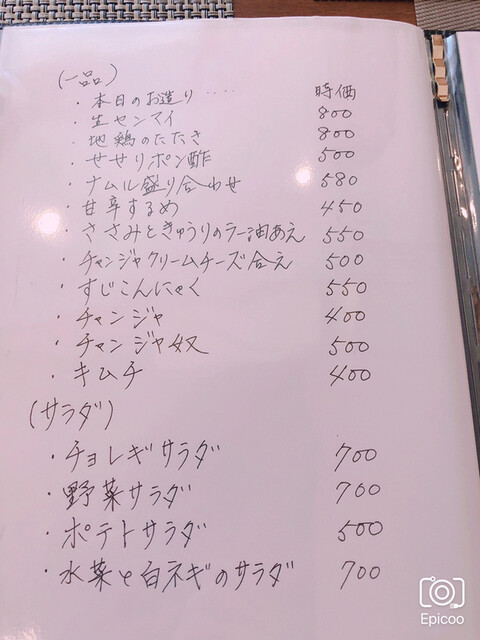 (一品)
・本日のお造り‥‥ 時価
・生センマイ 800
・地鶏のたたき 800
・せせりポン酢 500
・ナムル盛り合わせ 580
・甘辛するめ 450
・ささみときゅうりのラー油あえ 550
・チャンジャクリームチーズ合え 500
・すじこんにゃく 550
・チャンジャ 400
・チャンジャ奴 500
・キムチ 400
(サラダ)
・チョレギサラダ 700
・野菜サラダ 700
・ポテトサラダ 500
・水菜と白ネギのサラダ 700
Epicoo